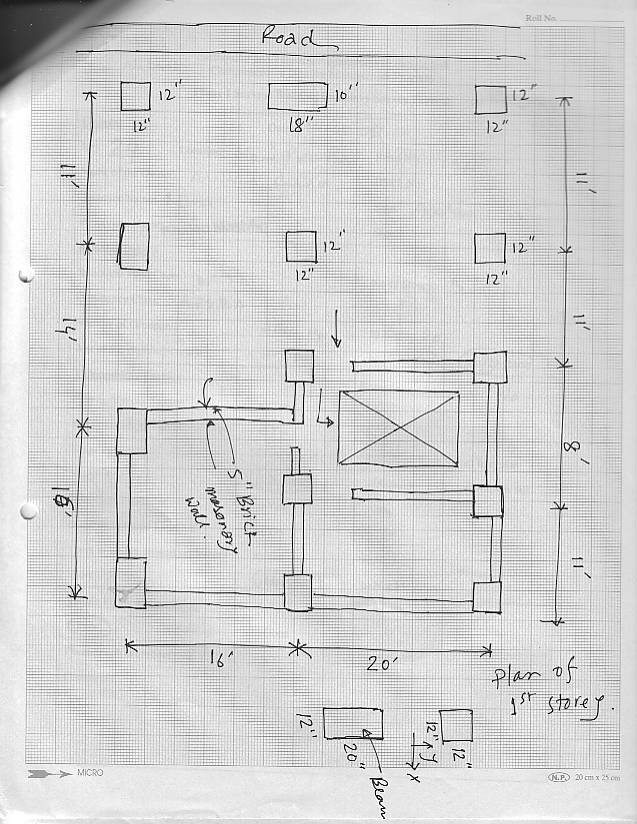 Roll No.
Road
12"
10"
12"
12"
18"
12"
11'
11'
12"
12"
12"
12"
14'
11'
8'
5" Brick
masonory
wall.
11'
16'
20'
Plan of
1st storey.
12"
20"
12"
12"
y
x
Beam
MICRO
N.P. 20 cm x 25 cm